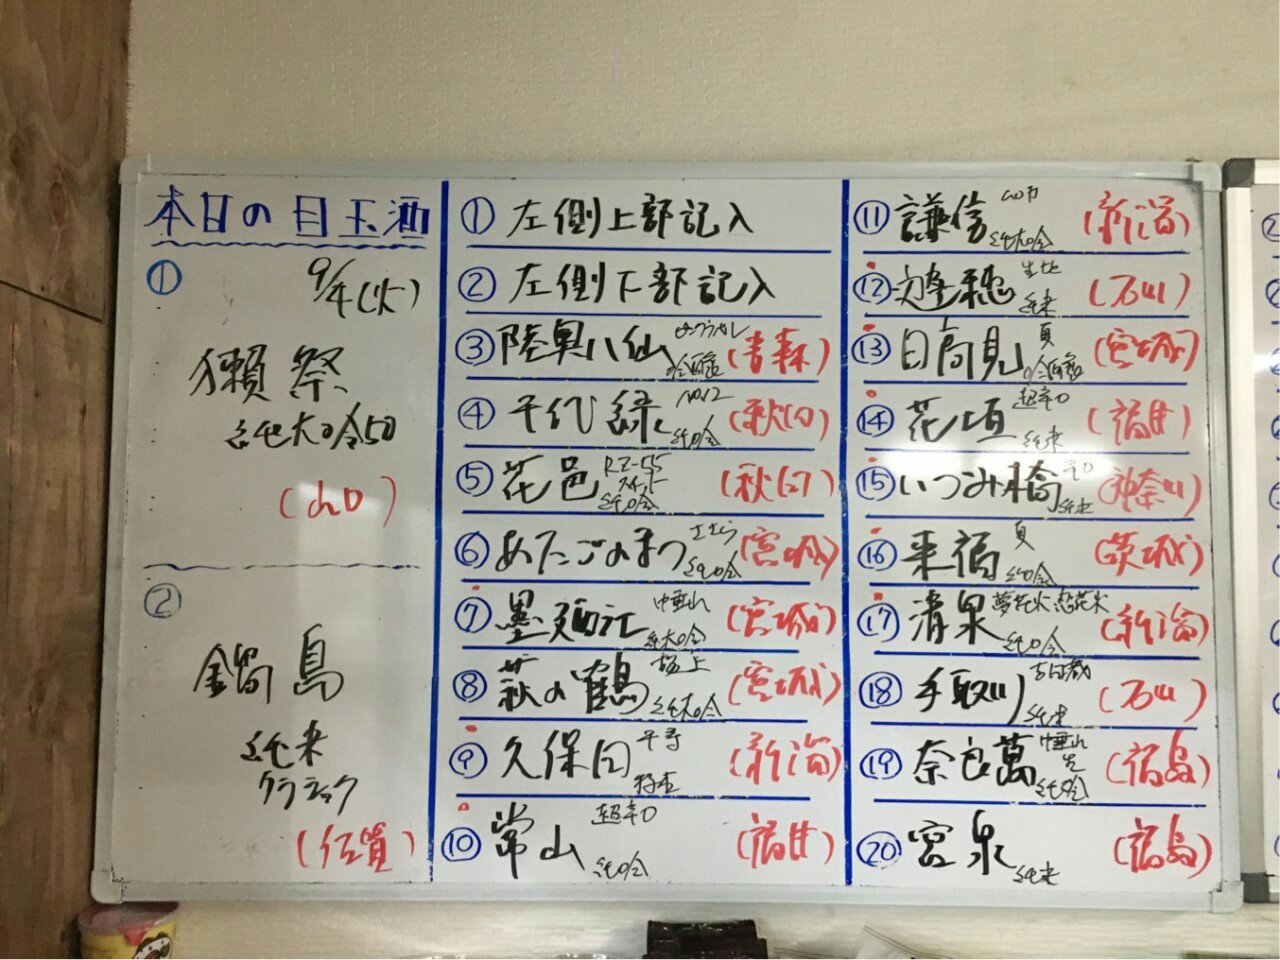 本日の目玉酒
① 9/4(火)
獺祭
純大吟50
(山口)
②
鍋島
純米
クラシック
(佐賀)
① 左側上部記入
② 左側下部記入
③ 陸奥八仙 吟醸 (青森)
④ 千代緑 No.12 純吟 (秋田)
⑤ 花邑 RZ-55 純吟 (秋田)
⑥ あたごのまつ ささら 純吟 (宮城)
⑦ 墨廼江 中垂れ 純大吟 (宮城)
⑧ 萩の鶴 極上 純大吟 (宮城)
⑨ 久保田 千寿 (新潟)
⑩ 常山 超辛口 純吟 (福井)
⑪ 謙信 純大吟 (新潟)
⑫ 遊穂 純米 (石川)
⑬ 日高見 夏 吟醸 (宮城)
⑭ 花垣 超辛口 純米 (福井)
⑮ いづみ橋 辛口 純米 (神奈川)
⑯ 来福 夏 純吟 (茨城)
⑰ 清泉 夢花火 恋花火 純吟 (新潟)
⑱ 手取川 古都 純米 (石川)
⑲ 奈良萬 中垂れ 生 純吟 (福島)
⑳ 宮泉 純米 (福島)